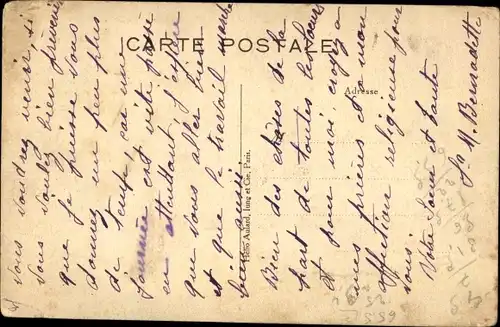 CARTE POSTALE
Adresse
Hélio Aulard, Iung et Cie, Paris.
vous voudrez venir, si
vous voulez bien prévenir
que je puisse vous
donner un peu plus
de temps, car une
journée est vite passée
en attendant j'espère
que vous allez bien
et que le travail marche
bien aussi
Bien des choses de la
part de toutes les sœurs
et pour moi croyez à
mes prières et à mon
affection religieuse pour
vous.
Votre sœur et tante
Sr M. Bernadette